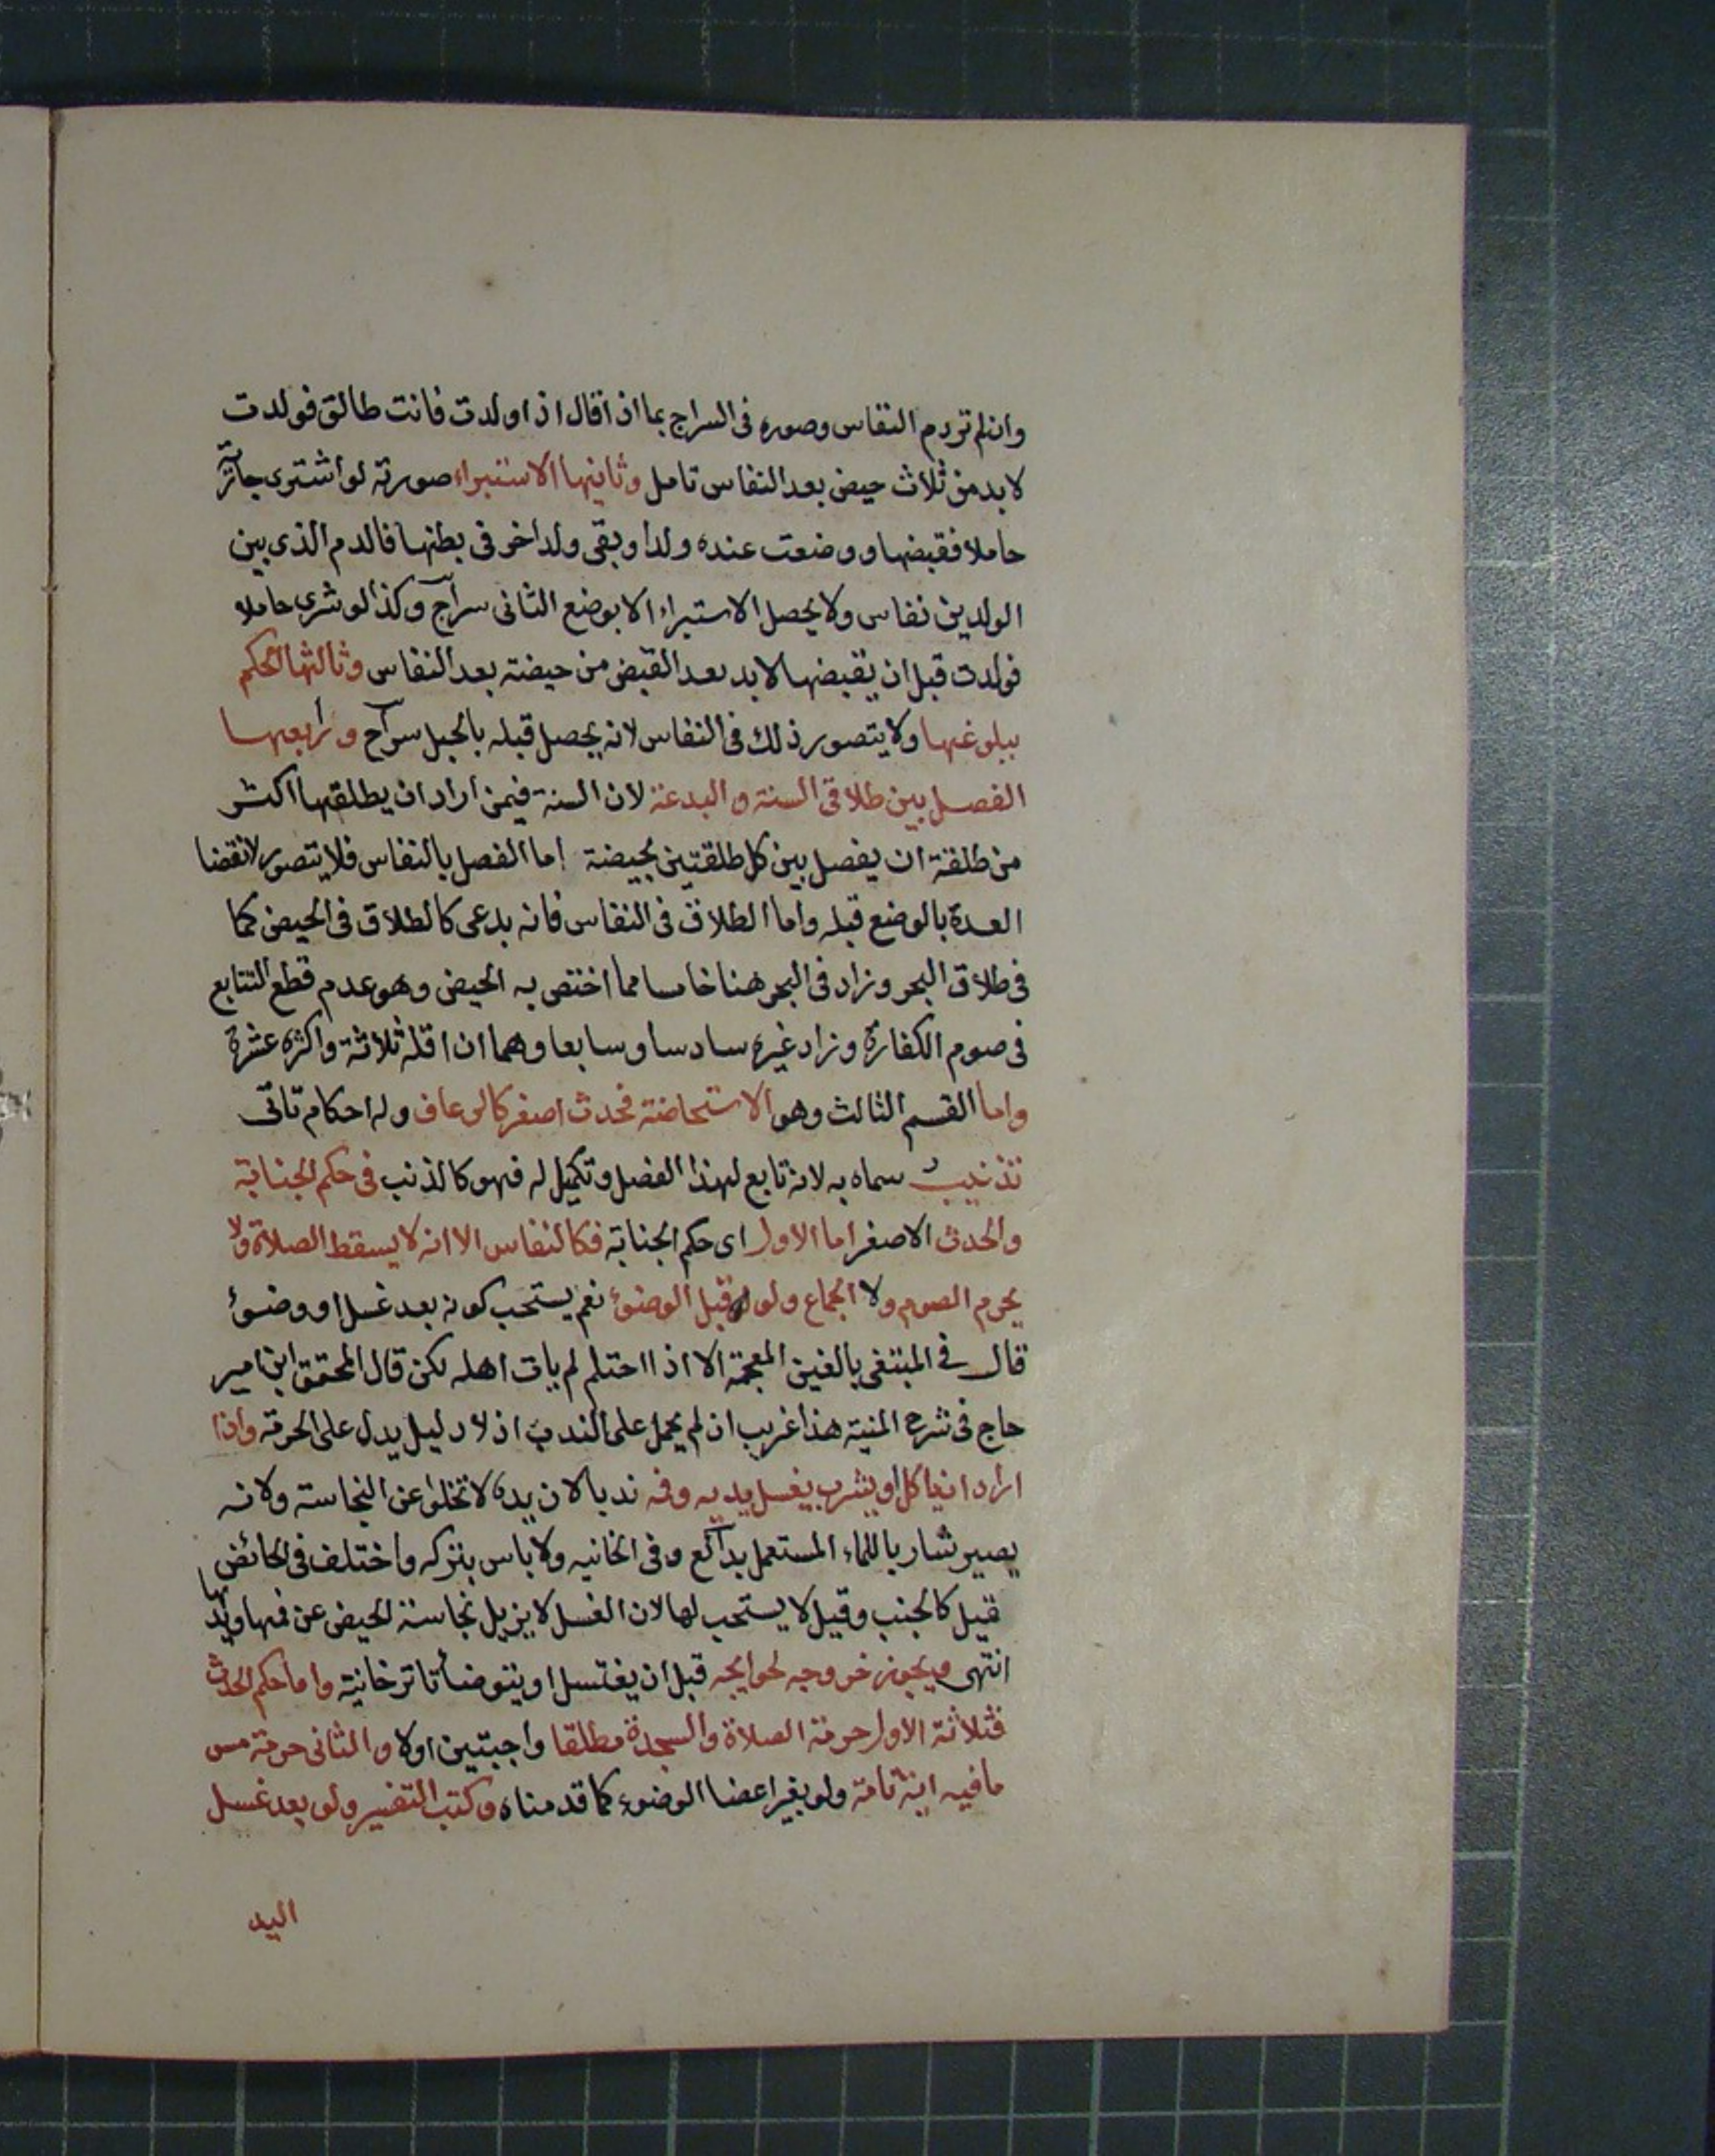 وان لم تر دم النفاس وصوره فى السراج بما اذا قال اذا ولدت فانت طالق فولدت
لا بد من ثلاث حيض بعد النفاس تامل وثانيها الاستبراء صورته لو اشترى جارية
حاملا فقبضها ووضعت عنده ولدا وبقى ولد اخر فى بطنها فالدم الذى بين
الولدين نفاس ولا يحصل الاستبراء الا بوضع الثانى سراج وكذا لو شرى حاملا
فولدت قبل ان يقبضها لا بد بعد القبض من حيضة بعد النفاس وثالثها الحكم
ببلوغها ولا يتصور ذلك فى النفاس لانه يحصل قبله بالحبل سراج ورابعها
الفصل بين طلاقى السنة والبدعة لان السنة فيمن اراد ان يطلقها اكثر
من طلقة ان يفصل بين كل طلقتين بحيضة اما الفصل بالنفاس فلا يتصور لانقضا
العدة بالوضع قبله واما الطلاق فى النفاس فانه بدعى كالطلاق فى الحيض كما
فى طلاق البحر وزاد فى البحر هنا خامسا مما اختص به الحيض وهو عدم قطع التتابع
فى صوم الكفارة وزاد غيره سادسا وسابعا وهما ان اقله ثلاثة واكثره عشرة
واما القسم الثالث وهو الاستحاضة فحدث اصغر كالرعاف وله احكام تاتى
تذنيب سماه به لانه تابع لهذا الفصل وتكميل له فهو كالذنب فى حكم الجنابة
والحدث الاصغر اما الاول اى حكم الجنابة فكالنفاس الا انه لا يسقط الصلاة ولا
يحرم الصوم ولا الجماع ولو قبل الوضوء نعم يستحب كونه بعد غسل او وضوء
قال فى المبتغى بالغين المعجمة الا اذا احتلم لم يات اهله لكن قال المحقق ابن امير
حاج فى شرح المنية هذا غريب ان لم يحمل على الندب اذ لا دليل يدل على الحرمة واذا
اراد ان ياكل او يشرب يغسل يديه وفمه ندبا لان يده لا تخلو عن النجاسة ولانه
يصير شاربا للماء المستعمل بدائع وفى الخانيه ولا باس بتركه واختلف فى الحائض
قيل كالجنب وقيل لا يستحب لها لان الغسل لا يزيل نجاسة الحيض عن فمها ويدها
انتهى ويجوز خروجه لحوايجه قبل ان يغتسل او يتوضأ تاترخانية واما حكم الحدث
فثلاثة الاول حرمة الصلاة والسجدة مطلقا واجبتين اولا والثانى حرمة مس
ما فيه اية تامة ولو بغير اعضا الوضوء كما قدمناه وكتب التفسير ولو بعد غسل
اليد